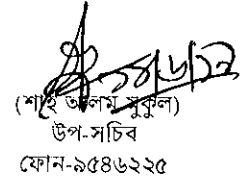 ১৮/৬/১২
(শাহ আলম মুকুল)
উপ-সচিব
ফোন-৯৫৪৬২২৫